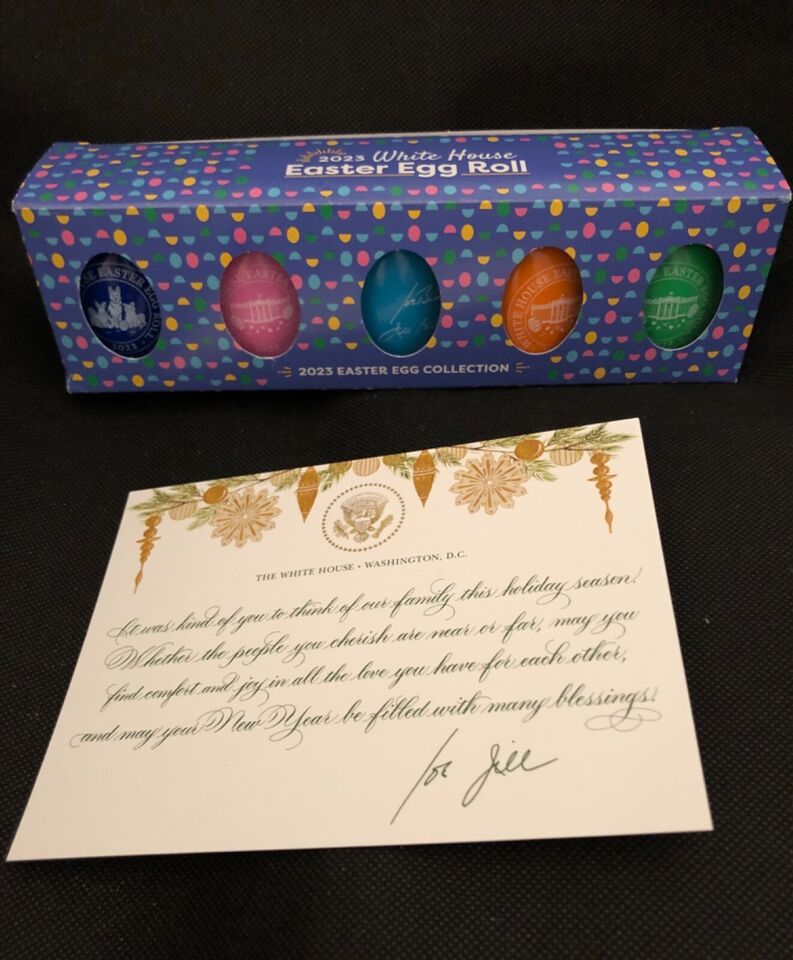 2023 White House
Easter Egg Roll
SE EASTER EGG ROLL
2023
EASTER
Jill
WHITE HOUSE EAS
EASTER EGG
2023 EASTER EGG COLLECTION
THE WHITE HOUSE • WASHINGTON, D.C.
It was kind of you to think of our family this holiday season.
Whether the people you cherish are near or far, may you
find comfort and joy in all the love you have for each other,
and may your New Year be filled with many blessings.
Joe Jill